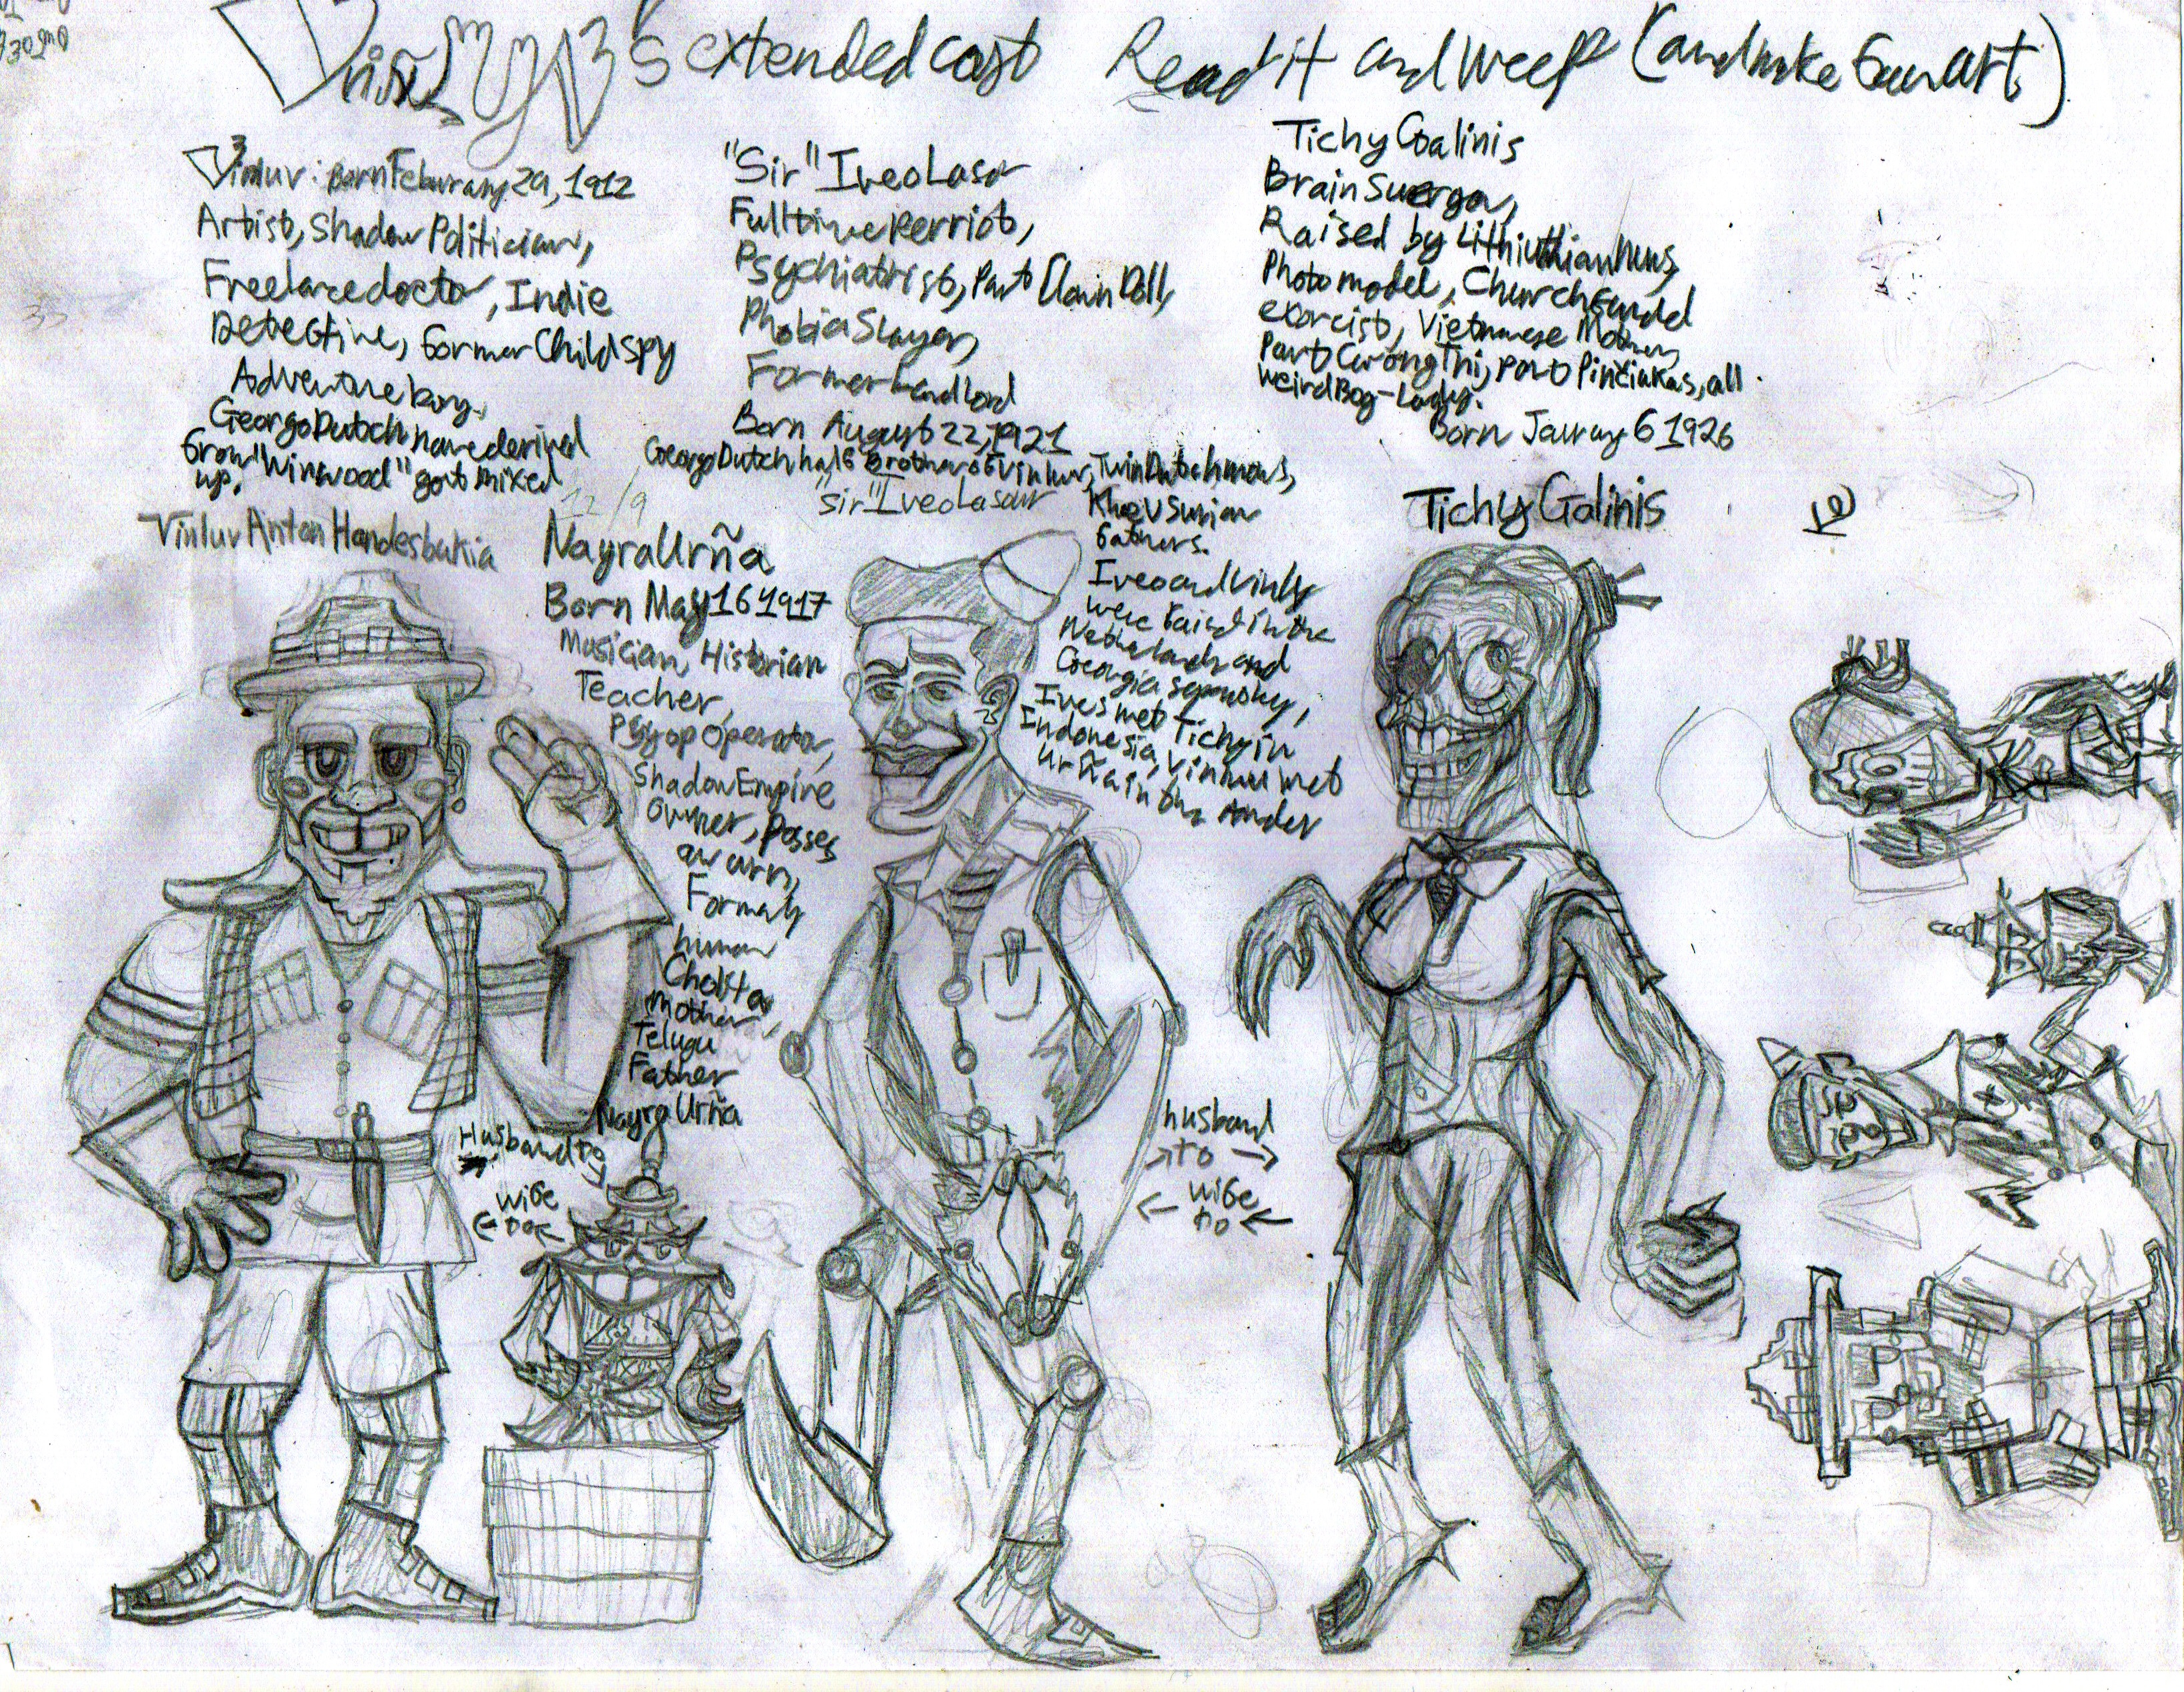 's extended cast Read it and weep (and make Fanart)
Vinluv: Born Feburary 29, 1912
Artist, Shadow Politician,
Freelance doctor, Indie
Detective, former Child spy
Adventure
Georgo Dutch name derived
from "Winwood" got mixed
up,
Vinluv Anton Handesbukia
"Sir" Iveo Lasar
Full time Perriot,
Psychiatrist, Part Clown Doll,
Phobia Slayer,
Former Landlord
Born August 22, 1921
Georgo Dutch half Brother of Vinluv, Twin Dutch moms,
Fathers.
"Sir" Iveo Lasar
Iveo and Vinluv
were raised in the
Netherlands and
Georgia
Iveo met Tichy in
Indonesia, Vinluv met
Urña in the Andes
Tichy Galinis
Brain
Raised by Nuns,
Photo model, Church
exorcist, Vietnamese Mother,
Part Cương Thi, Part Pinčiukas, all
weird Bog-Lady.
Born 6 1926
Tichy Galinis
Nayra Urña
Born May 16 1917
Musician, Historian
Teacher,
Psyop Operator,
Shadow Empire
Owner, Posses
an urn,
Formaly
human
Cholita
mother,
Telugu
Father
Nayra Urña
Husband to
wife
to
husband
to
wife
to